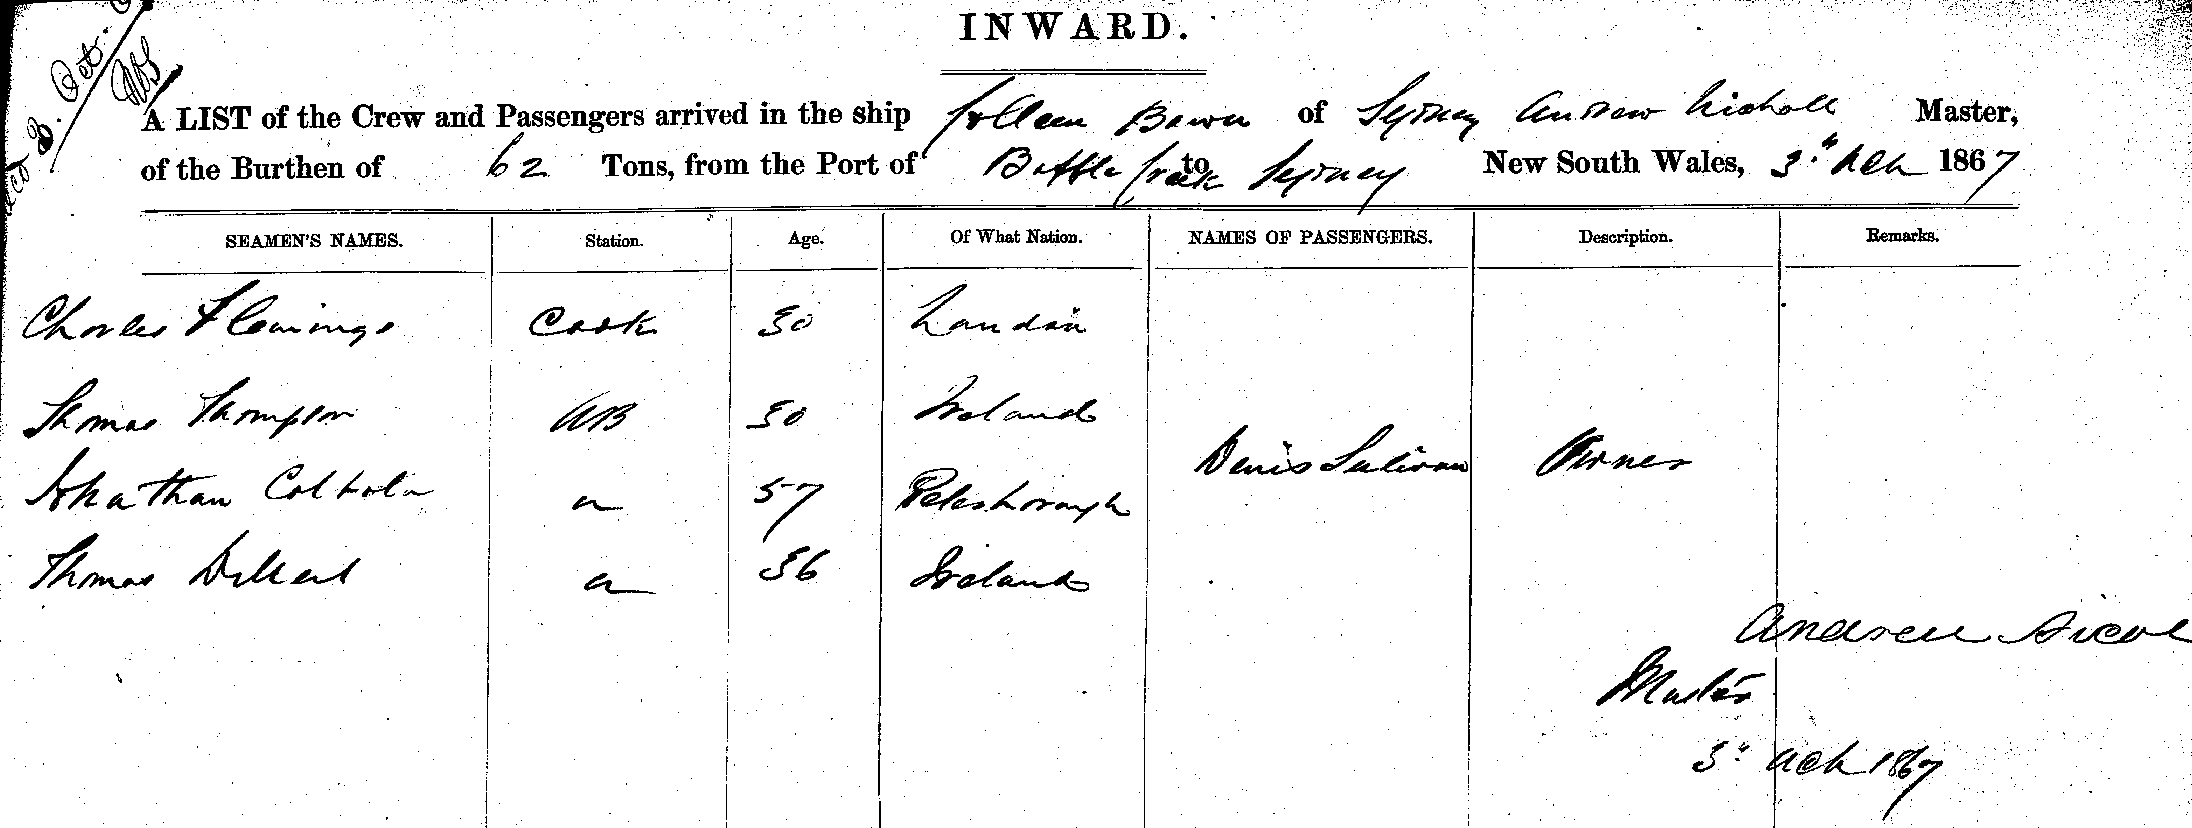 INWARD.
A LIST of the Crew and Passengers arrived in the ship Colleen Bawn of Sydney Andrew Nicholl Master,
of the Burthen of 62 Tons, from the Port of Bottle Creek to Sydney New South Wales, 3rd Oct 1867
SEAMEN'S NAMES. Station. Age. Of What Nation. NAMES OF PASSENGERS. Description. Remarks.
Charles Flemings Cook 30 London
Thomas Thompson AB 30 Ireland
Denis Sulivan Owner
Johathan 57 Petesborough
Thomas 36 Ireland
Andrew Nicol
Master
3rd Oct 1867